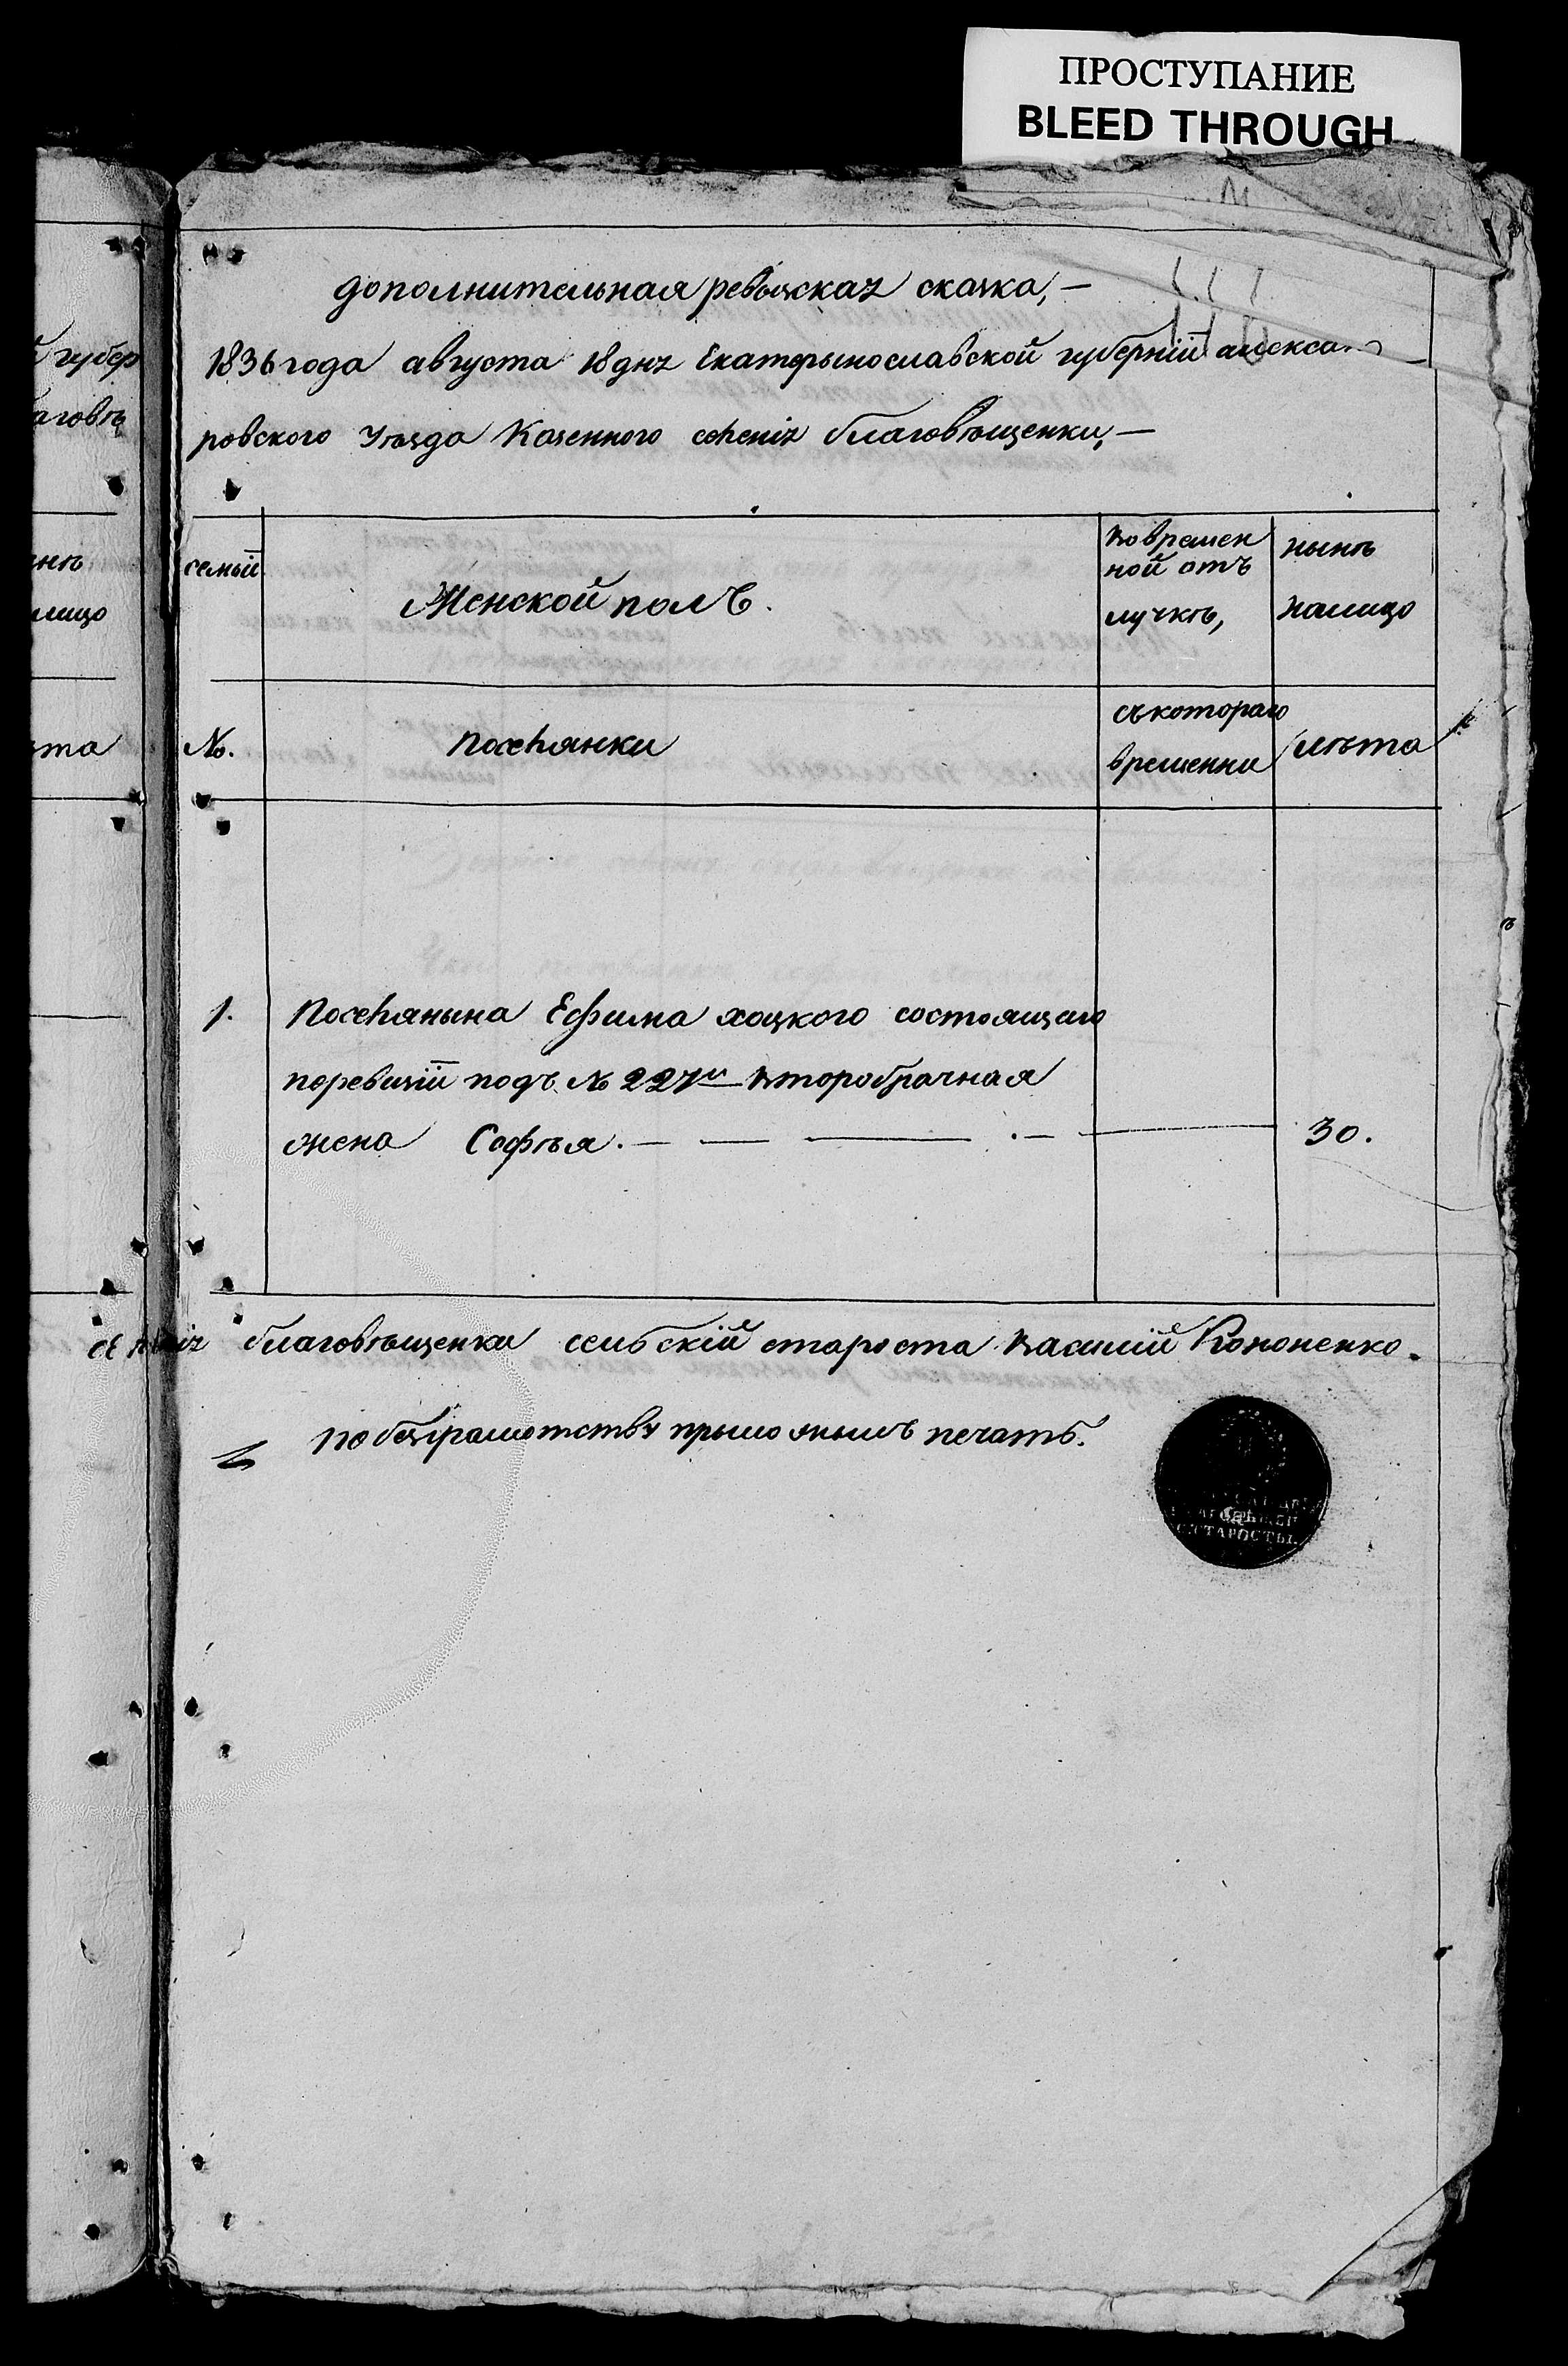 ПРОСТУПАНИЕ
BLEED THROUGH
дополнительная ревызская сказка,—
1836 года августа 18 дня Екатерынославской губерніи алексан
ровского Уѣзда Казенного селенія благовѣщенки,—
семьи
Женской полъ.
во времен
ной отъ
лучкѣ,
нынѣ
налицо
№.
поселянки
съ котораго
времени
лѣта
1. Поселянына Ефима хоцкого состоящаго
поревизіи подъ № 227м второбрачная
жена Софья.— — — .— — 30.
селенія благовѣщенки сельскій староста Василій Кононенко.
по безграмотству прыложылъ печать.
СТАРОСТЫ.
губер
аговѣ
лицо
та